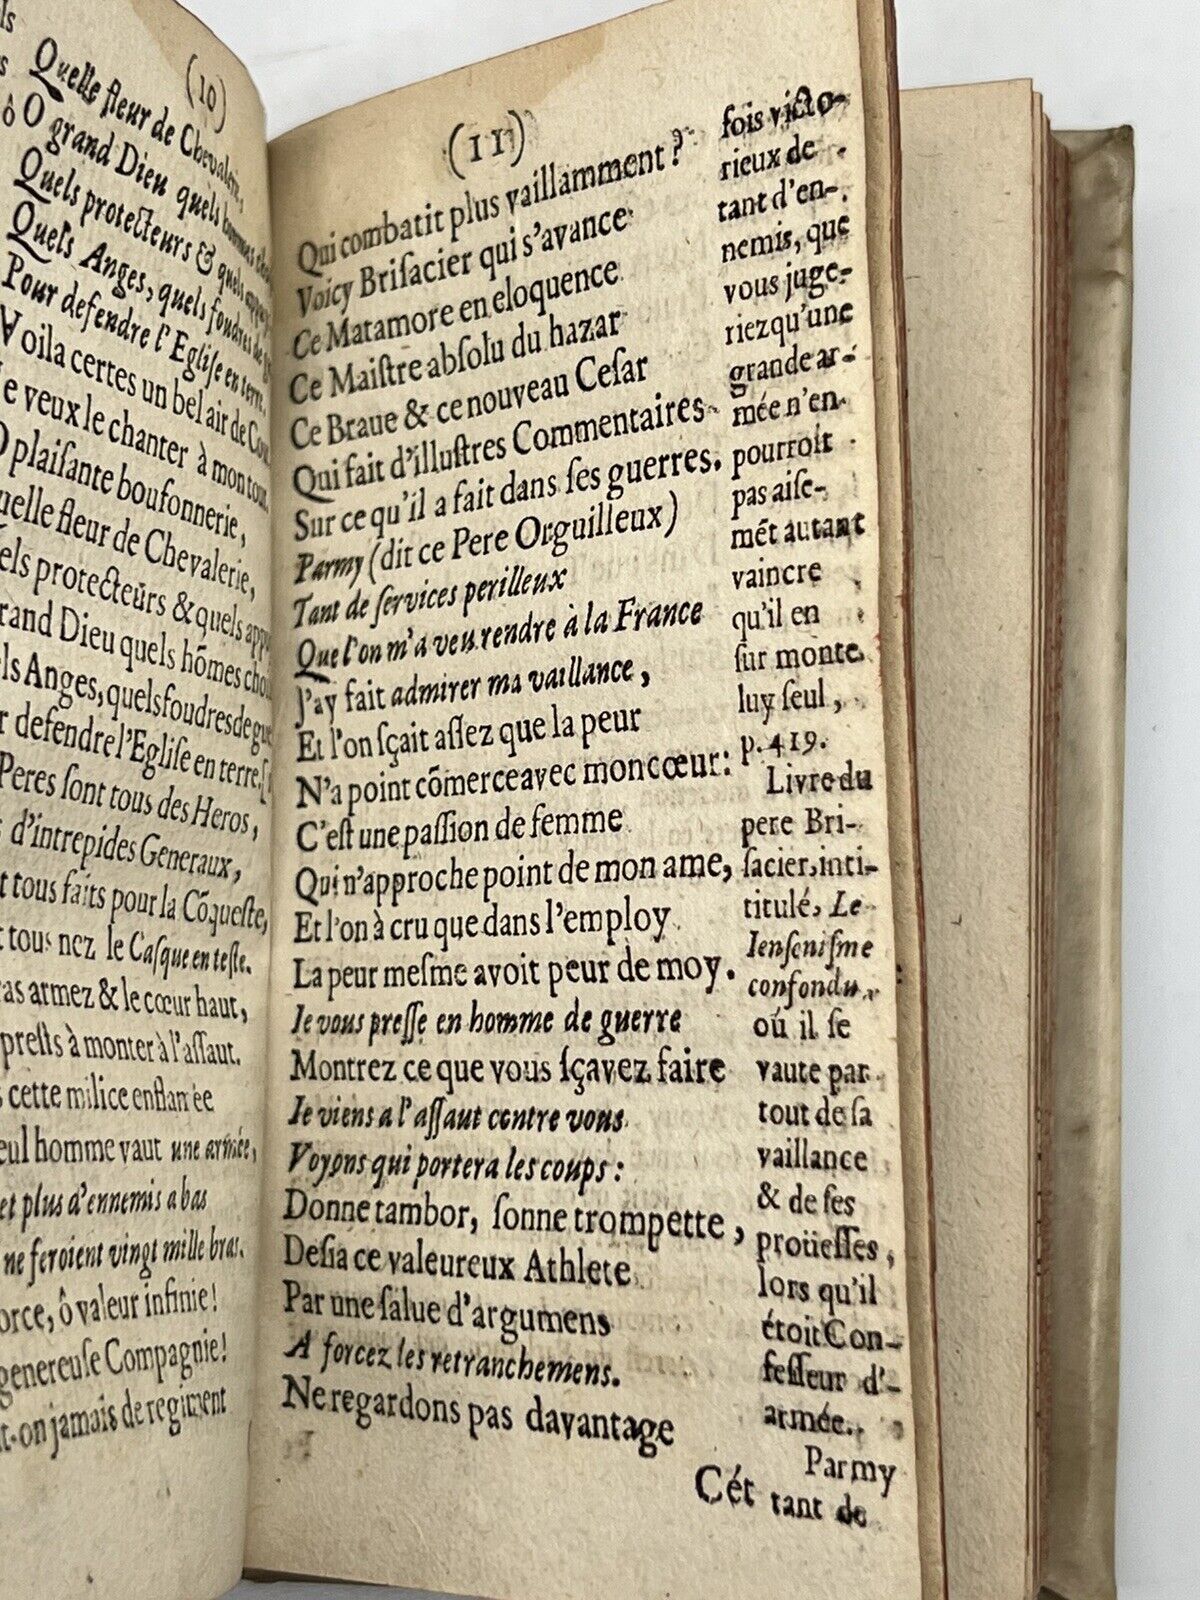 (10)
Quelle fleur de Chevalerie,
ô O grand Dieu quels hommes
Quels protecteurs & quels
Quels Anges, quels foudres de
Pour defendre l'Eglise en terre.
Voila certes un bel air de
e veux le chanter à mon tour
O plaisante boufonnerie,
uelle fleur de Chevalerie,
els protecteurs & quels
rand Dieu quels hõmes
ls Anges, quels foudres de
r defendre l'Eglise en terre,
Peres sont tous des Heros,
d'intrepides Generaux,
t tous faits pour la Cõqueste,
tous nez le Casque en teste.
ras armez & le cœur haut,
prests à monter à l'assaut.
s cette milice enflamée
eul homme vaut une armée,
et plus d'ennemis a bas
ne feroient vingt mille bras.
orce, ô valeur infinie!
genereuse Compagnie!
t-on jamais de regiment
(11)
Qui combatit plus vaillamment?
Voicy Brisacier qui s'avance
Ce Matamore en eloquence
Ce Maistre absolu du hazar
Ce Braue & ce nouveau Cesar
Qui fait d'illustres Commentaires
Sur ce qu'il a fait dans ses guerres.
Parmy (dit ce Pere Orguilleux)
Tant de services perilleux
Que l'on m'a veu rendre à la France
J'ay fait admirer ma vaillance,
Et l'on sçait assez que la peur
N'a point cõmerce avec mon cœur:
C'est une passion de femme
Qui n'approche point de mon ame,
Et l'on à cru que dans l'employ
La peur mesme avoit peur de moy.
Ie vous presse en homme de guerre
Montrez ce que vous sçavez faire
Ie viens a l'assaut contre vous
Voyons qui portera les coups:
Donne tambor, sonne trompette,
Desia ce valeureux Athlete
Par une salue d'argumens
A forcez les retranchemens.
Ne regardons pas davantage
Cét
fois victo-
rieux de
tant d'en-
nemis, que
vous juge-
riez qu'une
grande ar-
mée n'en
pourroit
pas aise-
mét autant
vaincre
qu'il en
surmonte
luy seul,
p. 419.
Livre du
pere Bri-
sacier, inti-
titulé, Le
Iensenisme
confondu,
où il se
vaute par
tout de sa
vaillance
& de ses
proüesses,
lors qu'il
étoit Con-
fesseur d'-
armée.
Parmy
tant de